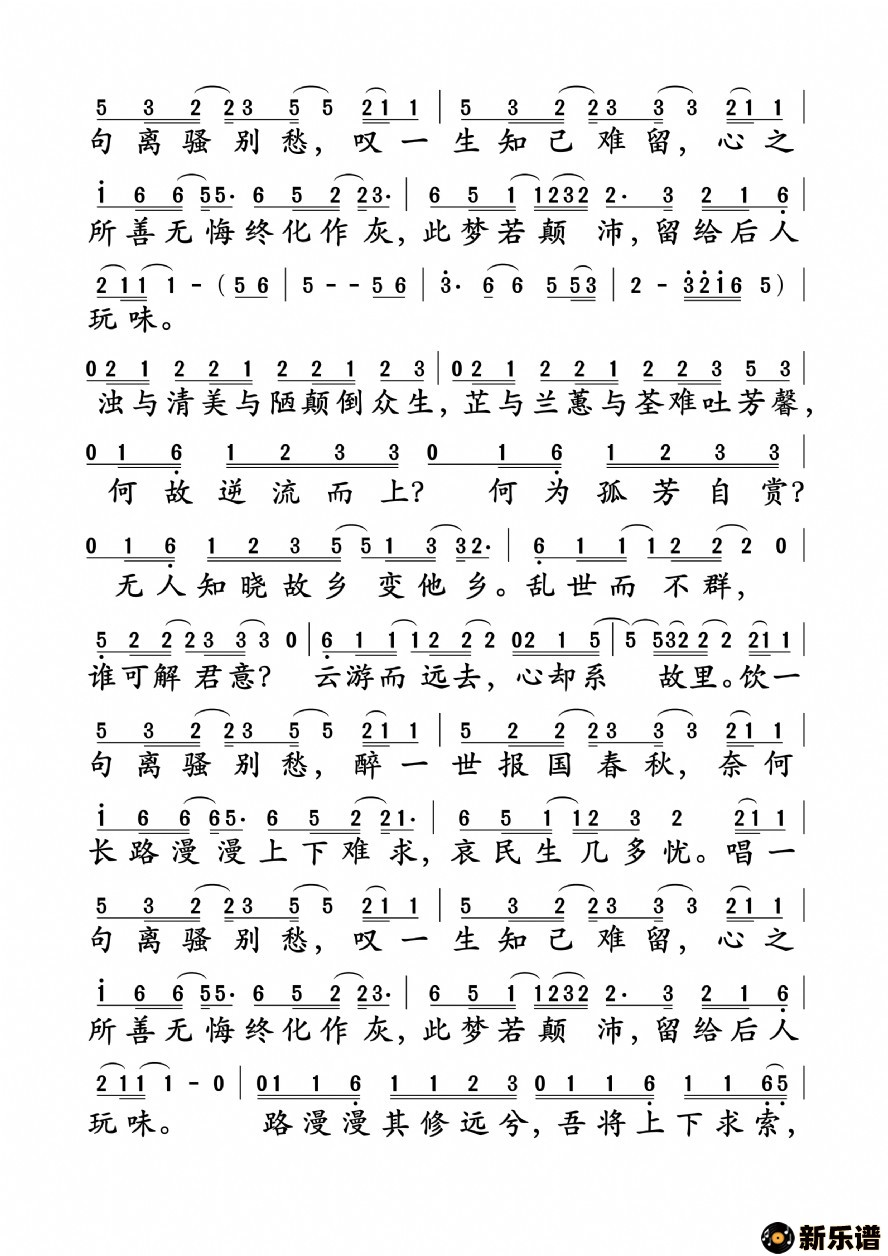 5 3 2 2 3 5 5 2 1 1 | 5 3 2 2 3 3 3 2 1 1 |
句离骚别愁，叹一生知己难留，心之
i 6 6 6 5 5· 6 5 2 2 3· | 6 5 1 1 2 3 2 2· 3 2 1 6 |
所善无悔终化作灰，此梦若颠 沛，留给后人
2 1 1 1 - ( 5 6 | 5 - - 5 6 | 3· 6 6 5 5 3 | 2 - 3 2 1 6 5 ) |
玩味。
0 2 1 2 2 1 2 2 1 2 2 3 | 0 2 1 2 2 1 2 2 3 5 3 |
浊与清美与陋颠倒众生，芷与兰蕙与荃难吐芳馨，
0 1 6 1 2 3 3 0 1 6 1 2 3 3 |
何故逆流而上？ 何为孤芳自赏？
0 1 6 1 2 3 5 5 1 3 3 2· | 6 1 1 1 2 2 2 0 |
无人知晓故乡 变他乡。乱世而 不群，
5 2 2 2 3 3 3 0 | 6 1 1 1 2 2 2 0 2 1 5 | 5 5 3 2 2 2 2 1 1 |
谁可解君意？ 云游而远去，心却系 故里。饮一
5 3 2 2 3 5 5 2 1 1 | 5 2 2 2 3 3 3 2 1 1 |
句离骚别愁，醉一世报国春秋，奈何
i 6 6 6 6 5· 6 5 2 2 1· | 6 5 1 1 2 3 2 2 1 1 |
长路漫漫上下难求，哀民生几多忧。唱一
5 3 2 2 3 5 5 2 1 1 | 5 3 2 2 3 3 3 2 1 1 |
句离骚别愁，叹一生知己难留，心之
i 6 6 6 5 5· 6 5 2 2 3· | 6 5 1 1 2 3 2 2· 3 2 1 6 |
所善无悔终化作灰，此梦若颠 沛，留给后人
2 1 1 1 - 0 | 0 1 1 6 1 1 2 3 0 1 1 6 1 1 6 5 |
玩味。 路漫漫其修远兮，吾将上下求索，
新乐谱